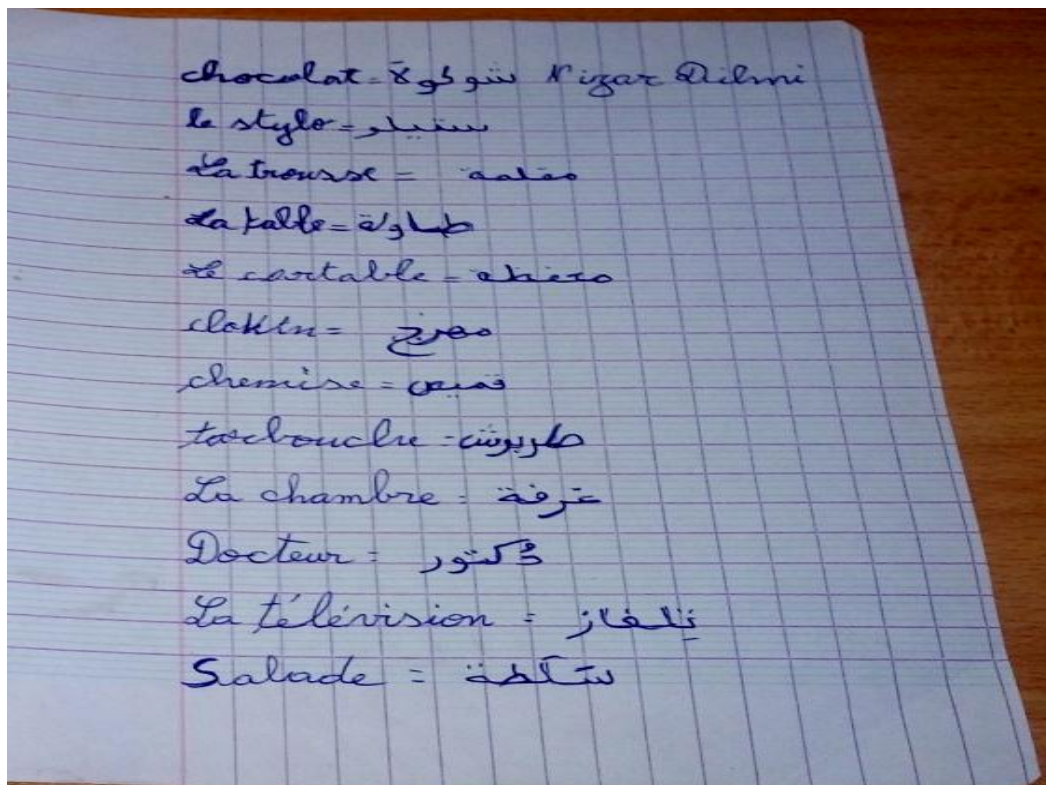 chocolat = شوكولآ Nizar Dilmi
le stylo = ستيلو
La trousse = مقلمة
La table = طاولة
Le cartable = محفظة
clown = مهرج
chemise = قميص
tarbouche = طربوش
La chambre = غرفة
Docteur = دُكتور
La télévision = تِلفاز
Salade = سَلَطة